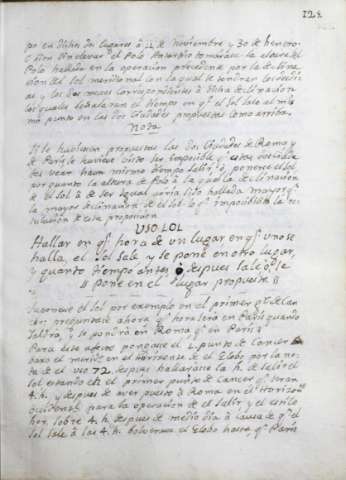 128
po en dichos dos lugares à 12 de Noviembre y 30 de henero.
Si sin elevar el Polo Antartico tomarase la altura del
Polo hallada en la operacion precedente por la declina
cion del sol meridional con la qual se tendran los
as, y los dos meses correspondientes à dicha declinacion
los quales señalaran el tiempo en q.e el sol sale al mis
mo punto en las dos Ciudades propuestas como arriba.
Nota
Si se hubieran propuesto las dos Ciudades de Roma y
de Paris, se hubiera visto ser imposible q.e estas Ciudades
vean à un mismo tiempo salir, ò ponerse el sol
por quanto la altura de Polo à la declinacion
de el sol à de ser igual seria sido hallada mayor q.e
la mayor declinacion de el sol lo q.e imposibilita la re
solucion de esta proposicion
USO LOL
Hallar en q.e hora de un lugar en q.e uno se
halla, el sol sale y se pone en otro lugar,
y quanto tiempo antes, ò despues sale, ò se
pone en el lugar propuesto
el sol por exemplo en el primer g.e de Can
cer preguntase ahora q.e hora sera en Paris quando
saldra, y se pondrà en Roma, q.e en Paris?
Para este efecto pongase el 1. punto de Cancer
baxo el merid.o en el Horizonte de el Globo por la no
ta de el uso 72 despues hallarase la h. de salir el
sol estando en el primer punto de Cancer q.e seran
4 h. y despues de aver puesto à Roma en el Horizo
Occidental para la operacion de el salir, y el estilo
hor. sobre 4 h. despues de medio dia à causa de q.e el
sol sale à las 4 h. bolverase el Globo hasta q.e Paris